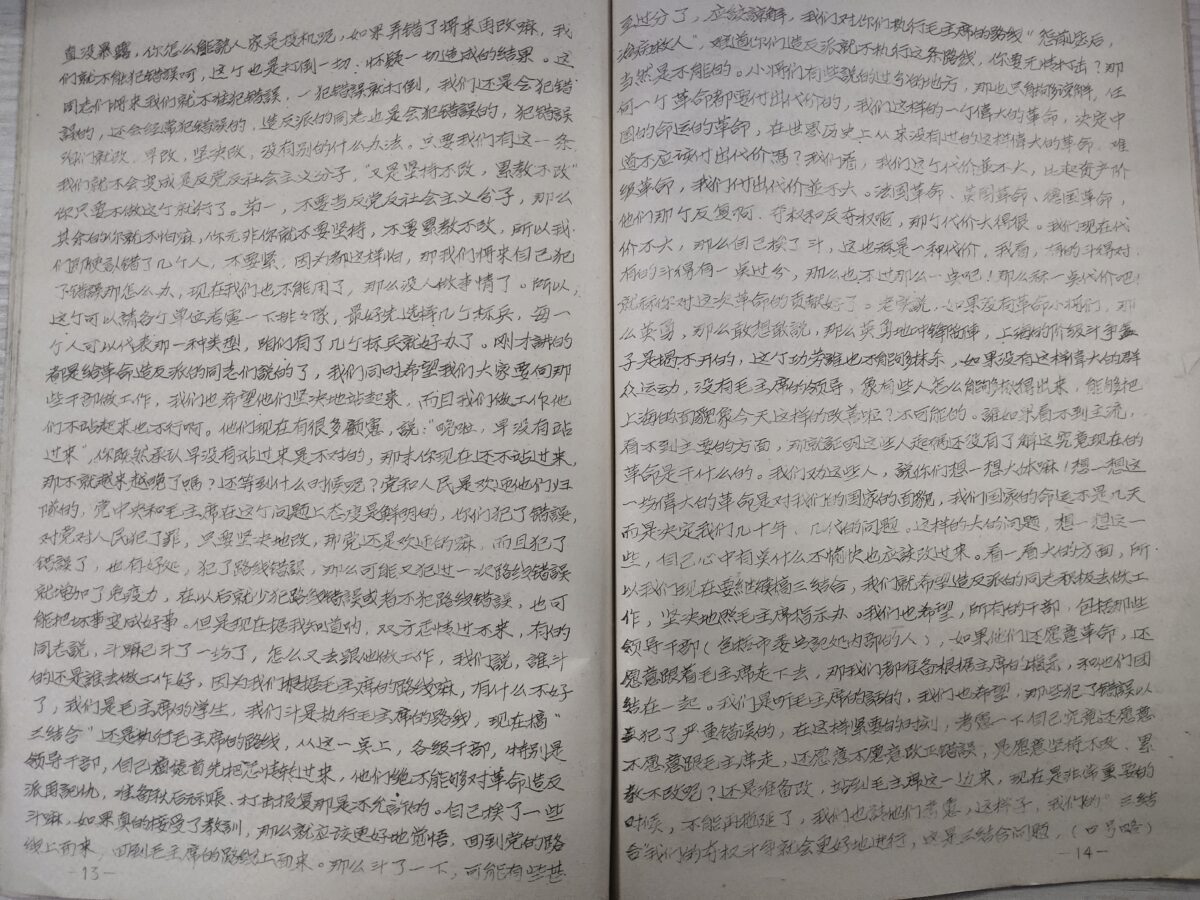 直没暴露，你怎么能说人家是投机呢，如果弄错了将来再改嘛，我
们就不能犯错误呵，这个也是打倒一切、怀疑一切造成的结果。这
同志们将来我们就不准犯错误，一犯错误就打倒，我们还是会犯错
误的，还会经常犯错误的，造反派的同志也是会犯错误的，犯错误
咱们就改，早改，坚决改，没有别的什么办法。只要我们有这一条
我们就不会变成是反党反社会主义分子，“又是坚持不改，累教不改”
你只要不做这个就行了。第一，不要当反党反社会主义分子，那么
其余的你就不怕嘛，你无非你就不要坚持，不要累教不改，所以我
们即使认错了几个人，不要紧，因为都这样怕，那我们将来自己犯
了错误那怎么办，现在我们也不能用了，那么没人做事情了。所以，
这个可以请各个单位考虑一下排々队，最好先选择几个标兵，每一
个人可以代表那一种类型，咱们有了几个标兵就好办了。刚才讲的
都是给革命造反派的同志们说的了，我们同时希望我们大家要向那
些干部做工作，我们也希望他们坚决地站起来，而且我们做工作他
们不站起来也不行啊。他们现在有很多顾虑，说：“晚啦，早没有站
过来”，你既然承认早没有站过来是不对的，那末你现在还不站过来，
那不就越来越晚了吗？还等到什么时候呢？党和人民是欢迎他们归
队的，党中央和毛主席在这个问题上态度是鲜明的，你们犯了错误，
对党对人民犯了罪，只要坚决地改，那党还是欢迎的嘛，而且犯了
错误了，也有好处，犯了路线错误，那么可能又犯过一次路线错误
就增加了免疫力，在以后就少犯路线错误或者不犯路线错误，也可
能把坏事变成好事。但是现在据我知道呐，双方感情过不来，有的
同志说，斗嘛已斗了一场了，怎么又去跟他做工作，我们说，谁斗
的还是谁去做工作好，因为我们根据毛主席的路线嘛，有什么不好
了，我们是毛主席的学生，我们斗是执行毛主席的路线，现在搞“
三结合”还是执行毛主席的路线，从这一点上，各级干部，特别是
领导干部，自己应该首先把感情转过来，他们绝不能够对革命造反
派再记仇，准备秋后算账、打击报复那是不允许的。自己挨了一些
斗嘛，如果真的接受了教训，那么就应该更好地觉悟，回到党的路
线上面来，回到毛主席的路线上面来。那么斗了一下，可能有些甚
-13-
至过分了，应该谅解，我们对你们执行毛主席的路线“惩前毖后，
治病救人”，难道你们造反派就不执行这条路线，你要无情打击？那
当然是不能的。小将们有些说的过分的地方，那也只能够谅解，任
何一个革命都要付出代价的，我们这样的一个伟大的革命，决定中
国的命运的革命，在世界历史上从来没有过的这样伟大的革命，难
道不应该付出代价吗？我们看，我们这个代价并不大，比起资产阶
级革命，我们付出代价并不大。法国革命、英国革命、德国革命，
他们那个反复啊、夺权和反夺权啦，那个代价大得很。我们现在代
价不大，那么自己挨了斗，这也算是一种代价，我看，有的斗得对，
有的斗得有一点过分，那么也不过那么一点吧！那么算一点代价吧！
就算你对这次革命的贡献好了。老实说，如果没有革命小将们，那
么英勇，那么敢想敢说，那么英勇地冲锋陷阵，上海的阶级斗争盖
子是揭不开的，这个功劳谁也不能够抹杀，如果没有这样伟大的群
众运动，没有毛主席的领导，象有些人怎么能够想得出来，能够把
上海的面貌象今天这样的改善啦？不可能的。谁如果看不到主流，
看不到主要的方面，那就说明这些人起码还没有了解这究竟现在的
革命是干什么的。我们劝这些人，说你们想一想大体嘛！想一想这
一场伟大的革命是对我们的国家的面貌，我们国家的命运不是几天
而是决定我们几十年、几代的问题。这样的大的问题，想一想这一
些，自己心中有点什么不愉快也应该改过来。看一看大的方面，所
以我们现在要继续搞三结合，我们就希望造反派的同志积极去做工
作，坚决地照毛主席指示办。我们也希望，所有的干部，包括那些
领导干部（包括市委各部处内部的人），如果他们还愿意革命，还
愿意跟着毛主席走下去，那我们都准备根据主席的指示，和他们团
结在一起。我们是听毛主席的话的，我们也希望，那些犯了错误以
至犯了严重错误的，在这样紧要的时刻，考虑一下自己究竟还愿意
不愿意跟毛主席走，还愿意不愿意改正错误，是愿意坚持不改、累
教不改呢？还是准备改，站到毛主席这一边来，现在是非常重要的
时候，不能再拖延了，我们也请他们考虑，这样子，我们的“三结
合”我们的夺权斗争就会更好地进行，这是三结合问题，（口号略）
-14-